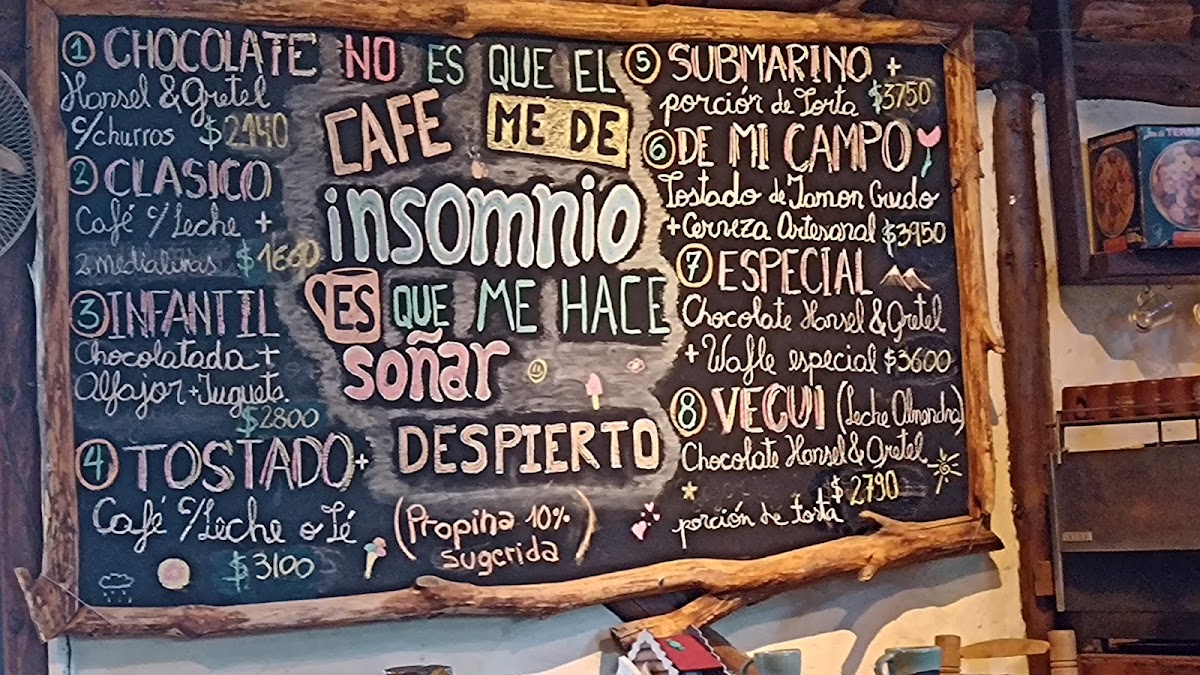 ① CHOCOLATE
Hansel & Gretel
c/churros $2140
② CLASICO
Café c/Leche +
2 medialunas
③ INFANTIL
Chocolatada +
Alfajor + Juguete.
$2800
④ TOSTADO +
Café c/Leche o Té
$3100
NO ES QUE EL
CAFE ME DE
insomnio
ES QUE ME HACE
soñar
DESPIERTO
(Propina 10%
sugerida)
⑤ SUBMARINO +
porción de Torta $3750
⑥ DE MI CAMPO
Tostado de Jamon Crudo
+ Cerveza Artesanal $3950
⑦ ESPECIAL
Chocolate Hansel & Gretel
+ Wafle especial $3600
⑧ VEGUI (Leche Almendra)
Chocolate Hansel & Gretel
$2790
porción de torta